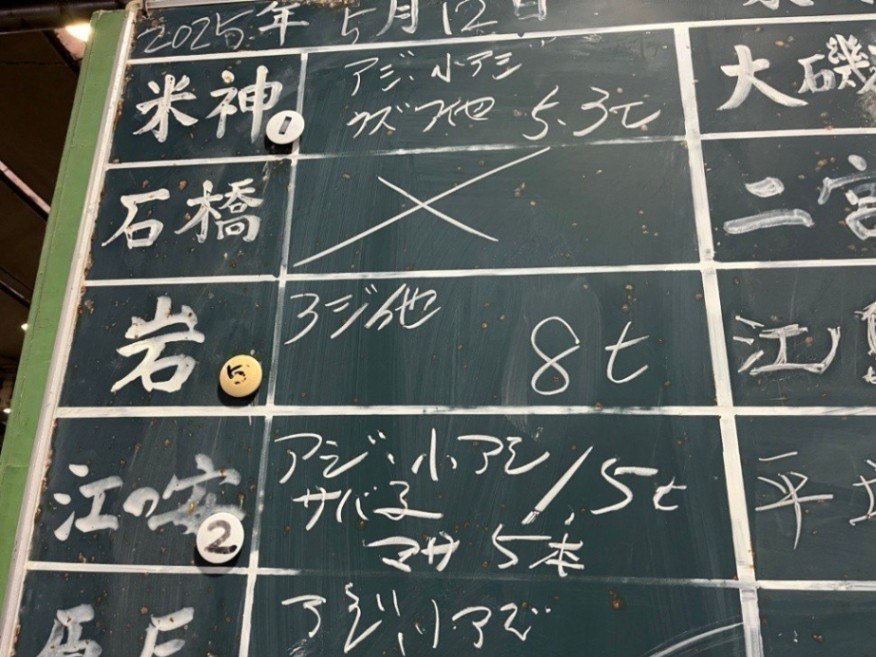 2025年 5月12日
米神 1
アジ・小アジ
ウズワ他 5.3t
大磯
石橋
×
二宮
岩 5
アジ他
8t
江
江の安 2
アジ・小アジ 15t
サバ子
マサ 5本
平
アジ・小アジ